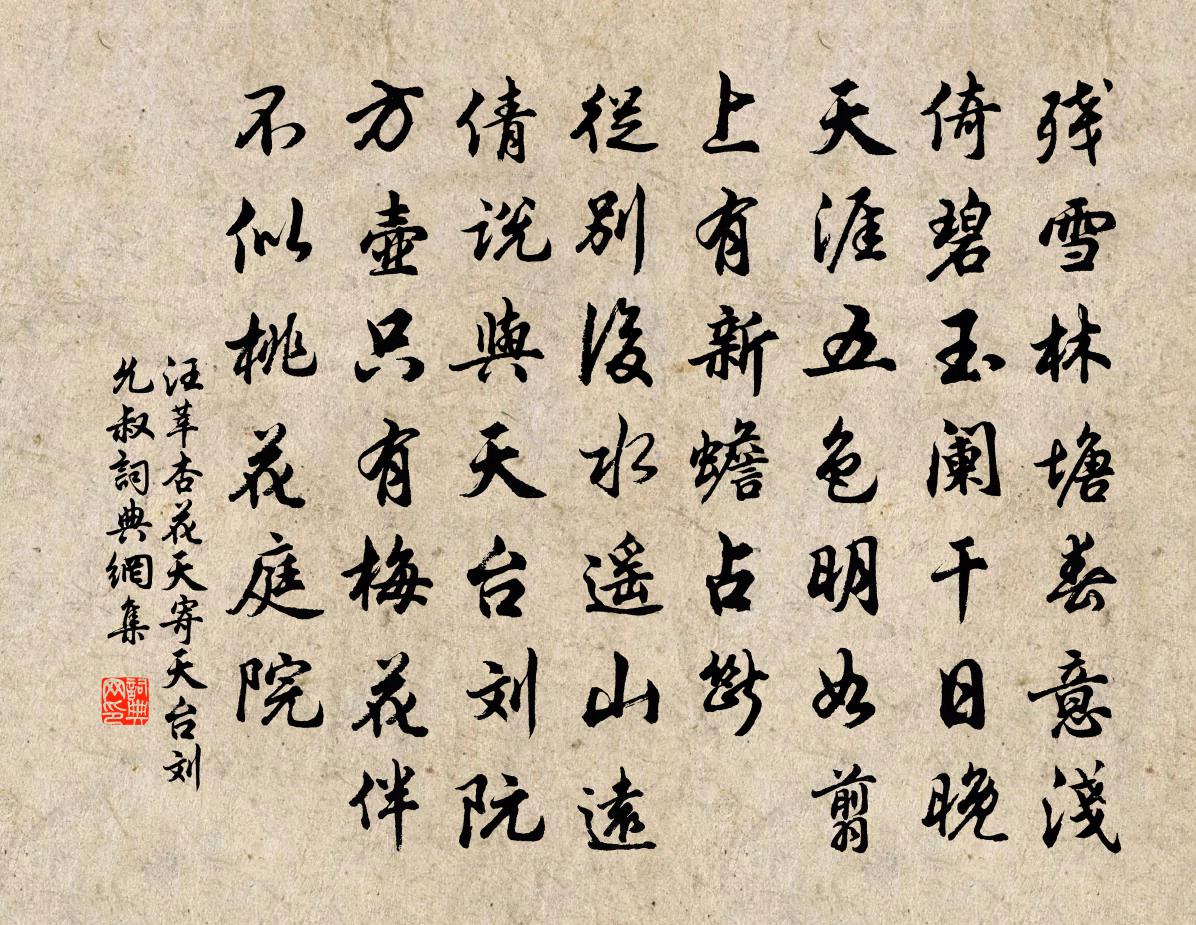 残雪林塘春意淺
倚碧玉阑干日晚
天涯五色明如翦
上有新蟾占斷
從別後水遥山遠
倩説與天台刘阮
方壺只有梅花伴
不似桃花庭院
汪莘杏花天寄天台刘
允叔詞典網集
詞典网印